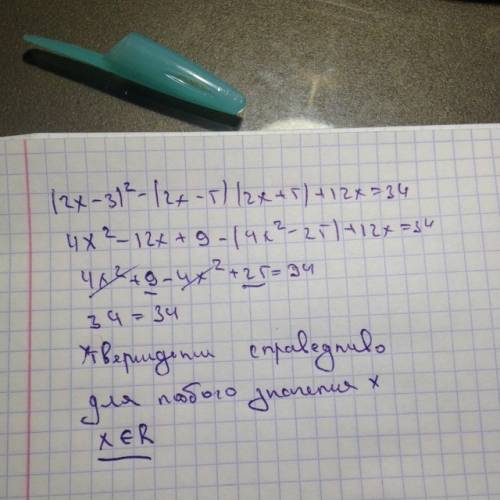 (2x-3)²-(2x-5)(2x+5)+12x=34
4x²-12x+9-(4x²-25)+12x=34
4x²+9-4x²+25=34
34=34
Утверждении справедливо
для любого значения x
x∈R